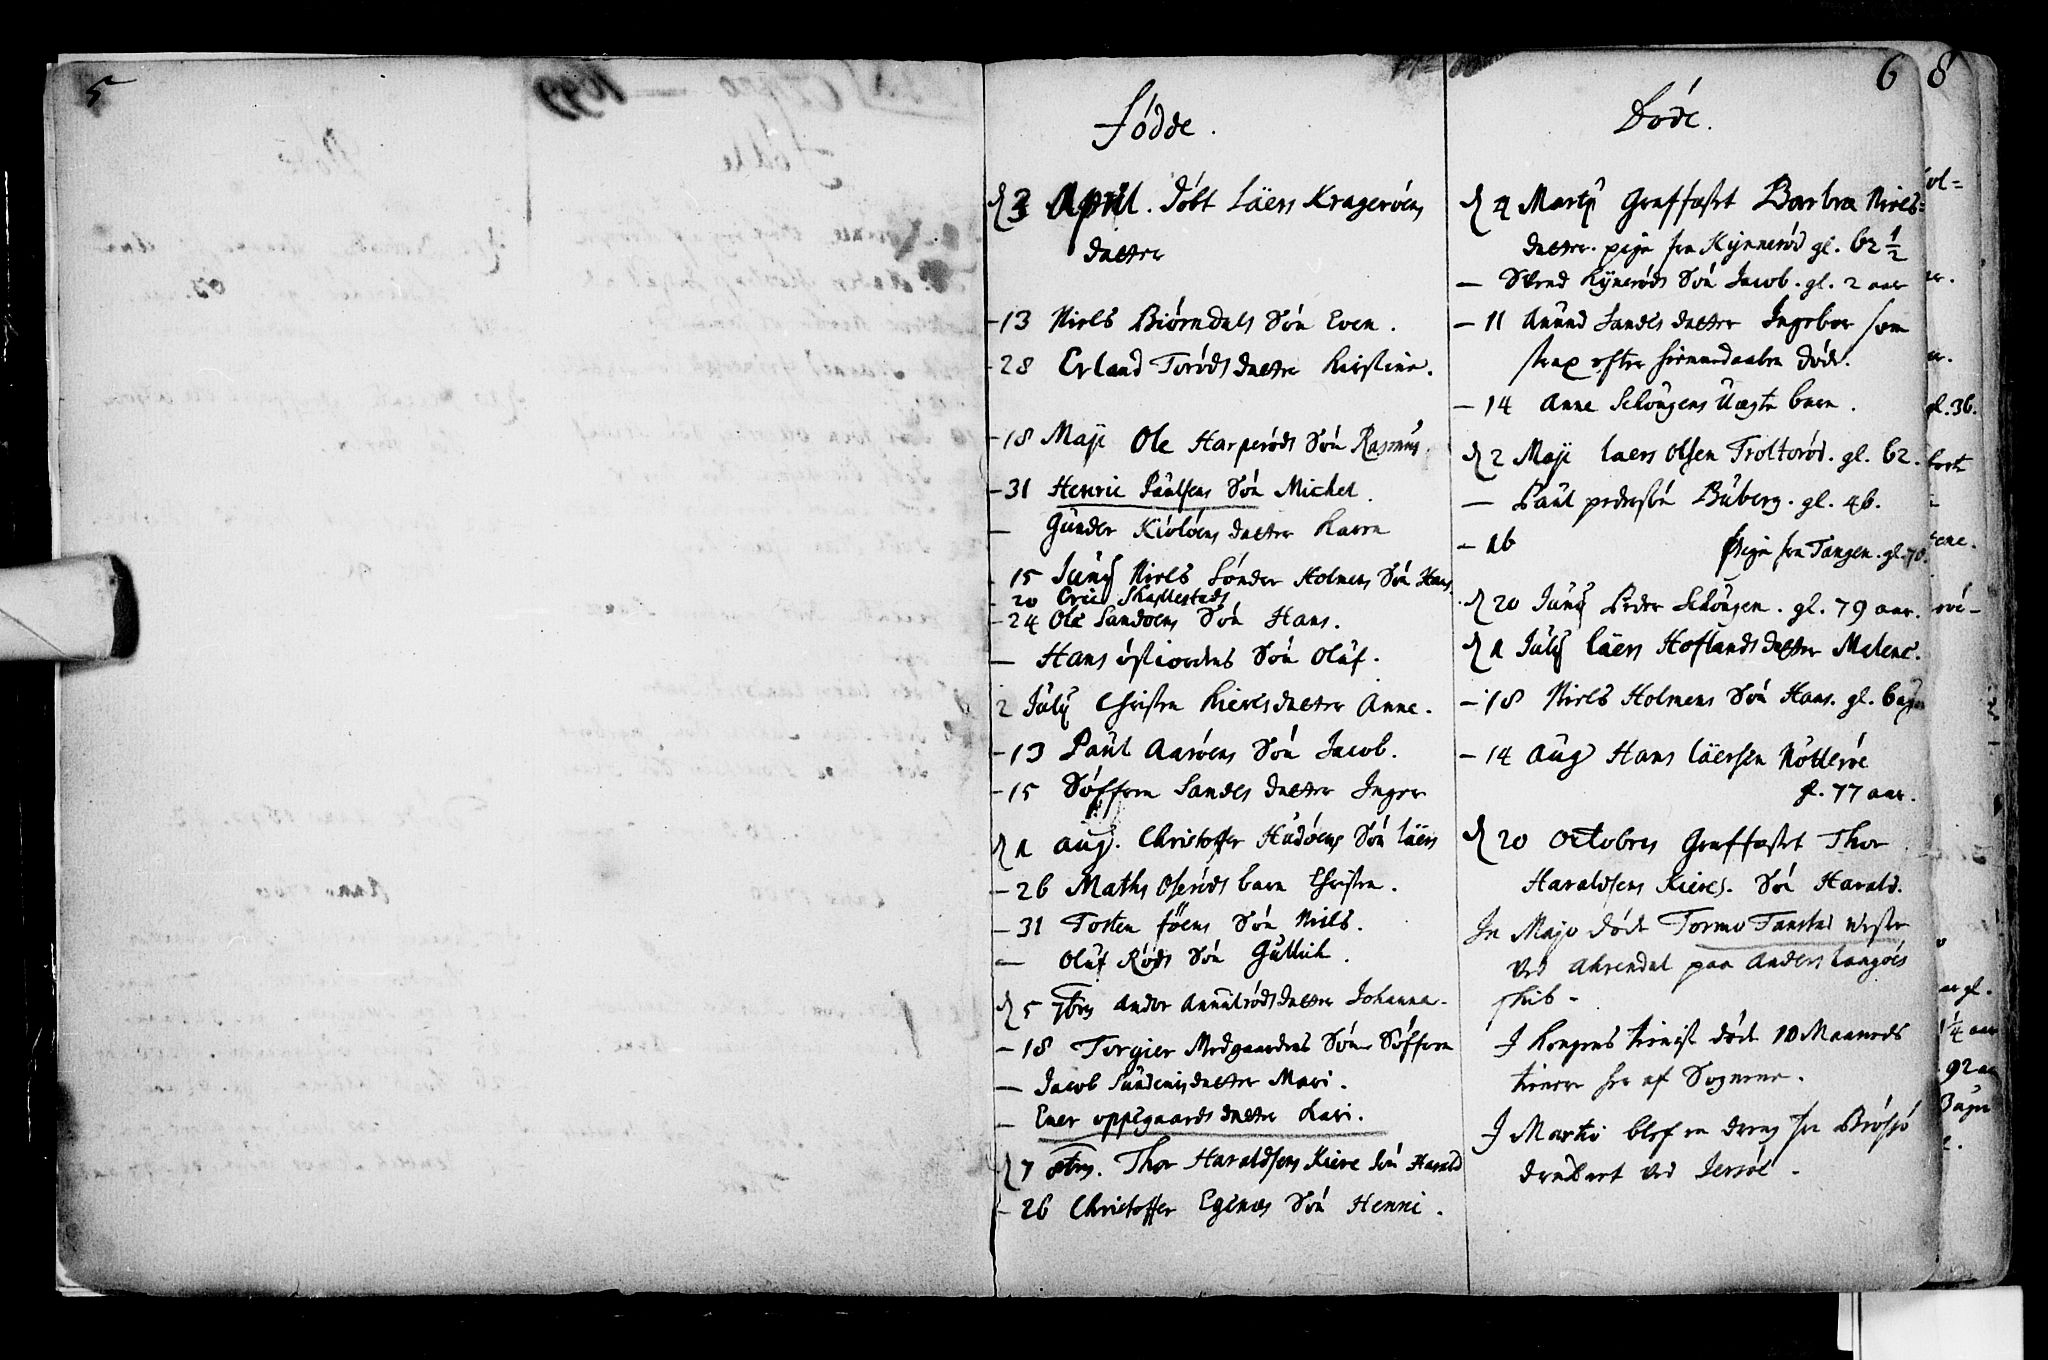 5
6
8
Fødde.
d 3 April. døbt Läers Kragerøens
datter
- 13 Niels Biørndals Søn Even.
- 28 Erland Torøds datter Kirstine.
- 18 Maji Ole Harperøds Søn Rasmus
- 31 Henric Paulsens Søn Michel.
- Gunder Kiøløens datter Karen
- 15 Junij Niels Sønder Holmens Søn Hans.
- 20 Eric Skallestads
- 24 Ole Sandøens Søn Hans.
- Hans østiordens Søn Oluf.
2 July Christen Kieres datter Anne.
- 13 Paul Aarøens Søn Jacob.
- 15 Søffren Sandes datter Inger
d 1 Aug. Christoffer Hudøens Søn läers
- 26 Maths Oserøds barn Christen.
- 31 Tosten føens Søn Niels.
- Oluf Røds Søn Gullich.
d 5 7bris Ander Annilrøds datter Johanna.
- 18 Torgier Medgaardens Søn Søffren
- Jacob Sundenis datter Mari.
- Ener oppegaards datter Kari.
d 7 8bris. Thor Haraldsens Kiere Søn Harald
- 26 Christoffer Egenæs Søn Henric.
Døde.
d 4 Martij Graffæstet Barbra Niels=
datter. pige fra Kynnerød gl. 62 1/2
- Svend Kynerøds Søn Jacob. gl. 2 aar
- 11 Anund Sandes datter Ingebor som
strax efter hiemmedaaben døde.
- 14 Anne Schougens Uægte barn.
d 2 Maji laers Olsen Troltorød. gl. 62.
- Paul pedersøn Buberg. gl. 46.
- 16 Pige fra Tangen. gl. 70.
d 20 Junij Peder Schougen. gl. 79 aar.
d 1 July läers Hoflands datter Malene.
- 18 Niels Holmens Søn Hans. gl. 6 uger
- 14 Aug Hans läersen Nøtterøe
gl. 77 aar.
d 20 Octobris Graffæstet Thor
Haraldsens Kieres. Søn Harald.
In Majo døde Tormo Tanstad
ved Ahrendal paa Anders langøes
skib -
I Kongens tienist døde 10 Maaneds
tienere her af Sognene.
I Martio blef en dreng fra Brøsjø
drucknet ved Jersøe -